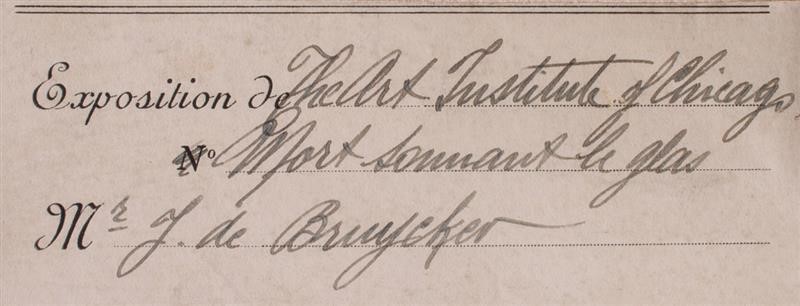 Exposition de The Art Institute of Chicago
Nº Mort sonnant le glas
Mr J. de Bruycker